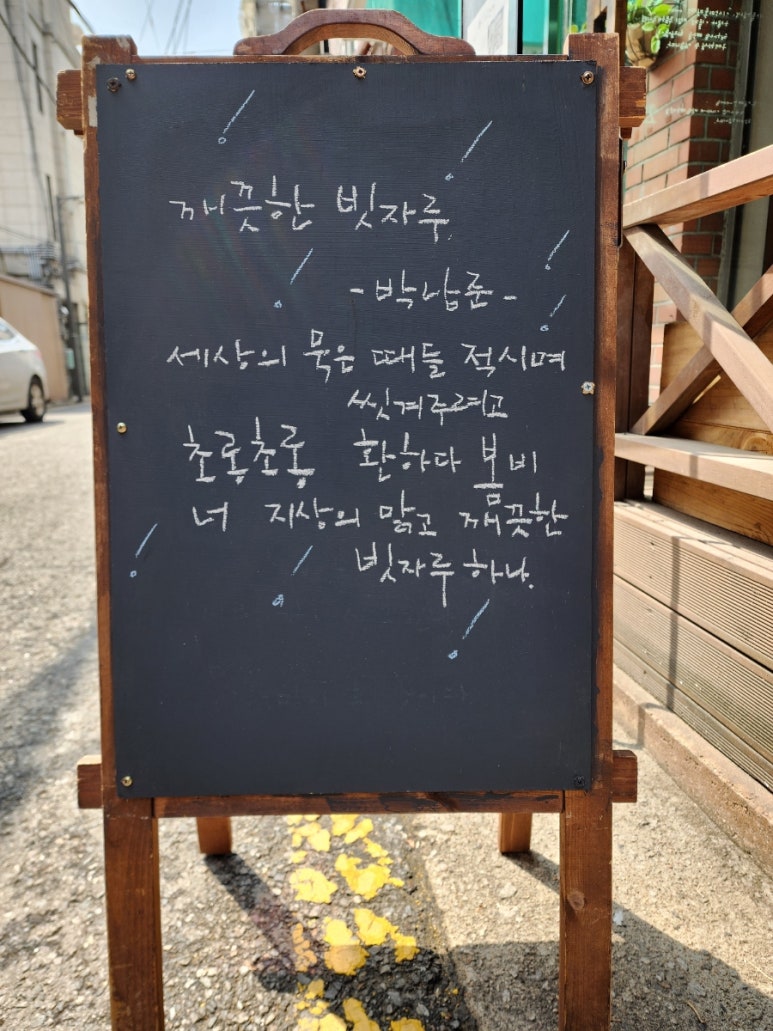 깨끗한 빗자루.
-박남준-
세상의 묵은 때들 적시며
씻겨주려고
초롱초롱 환하다 봄비
너 지상의 맑고 깨끗한
빗자루 하나.